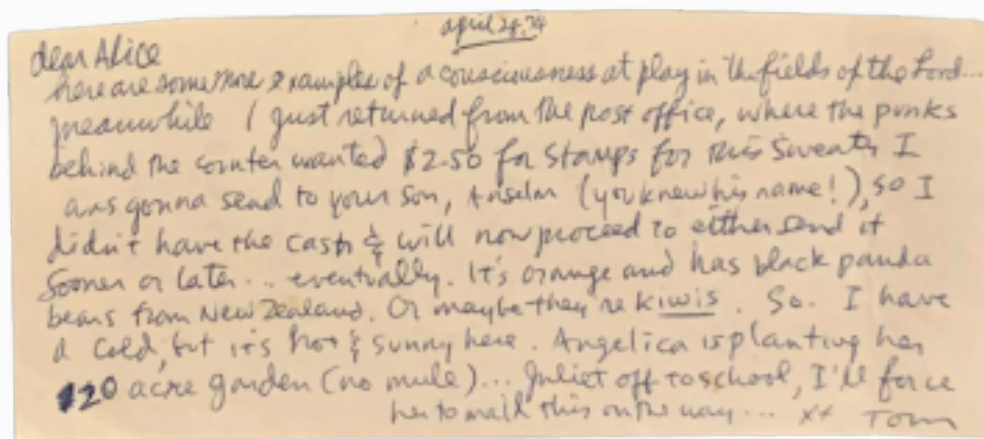 april 24, 74
dear Alice
here are some more examples of a consciousness at play in the fields of the Lord...
meanwhile I just returned from the post office, where the punks
behind the counter wanted $2.50 for stamps for this sweater I
was gonna send to your son, Anselm (you knew his name!), so I
didn't have the cash & will now proceed to either send it
sooner or later... eventually. It's orange and has black panda
bears from New Zealand. Or maybe they're kiwis. So. I have
a cold, but it's hot & sunny here. Angelica is planting her
20 acre garden (no mule)... Juliet off to school, I'll force
her to mail this on the way... xx Tom